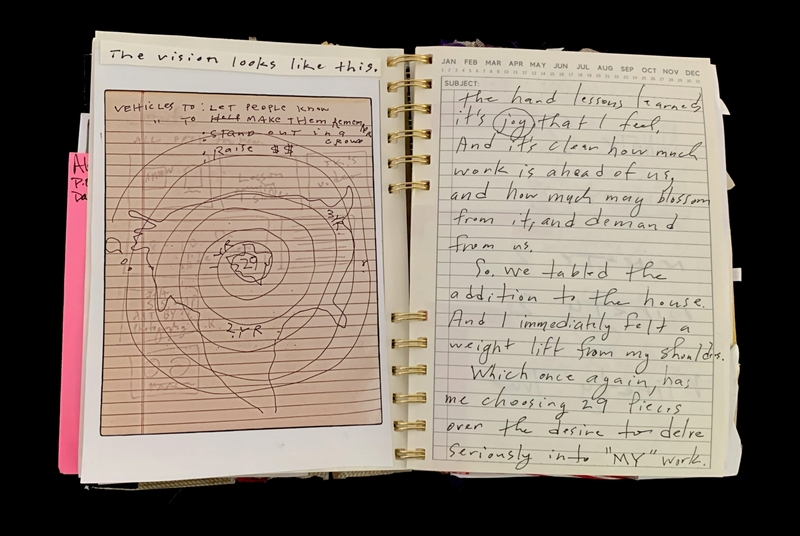 The vision looks like this.
VEHICLES TO: LET PEOPLE KNOW
" TO HELP MAKE THEM REMEMBER
: STAND OUT IN A CROWD
: RAISE $$
3YR.
29
2 YR
JAN FEB MAR APR MAY JUN JUL AUG SEP OCT NOV DEC
SUBJECT:
the hard lessons learned,
it's joy that I feel.
And it's clear how much
work is ahead of us,
and how much may blossom
from it, and demand
from us.
So. we tabled the
addition to the house.
And I immediately felt a
weight lift from my shoulders.
Which once again, has
me choosing 29 Pieces
over the desire to delve
seriously into "MY" work.